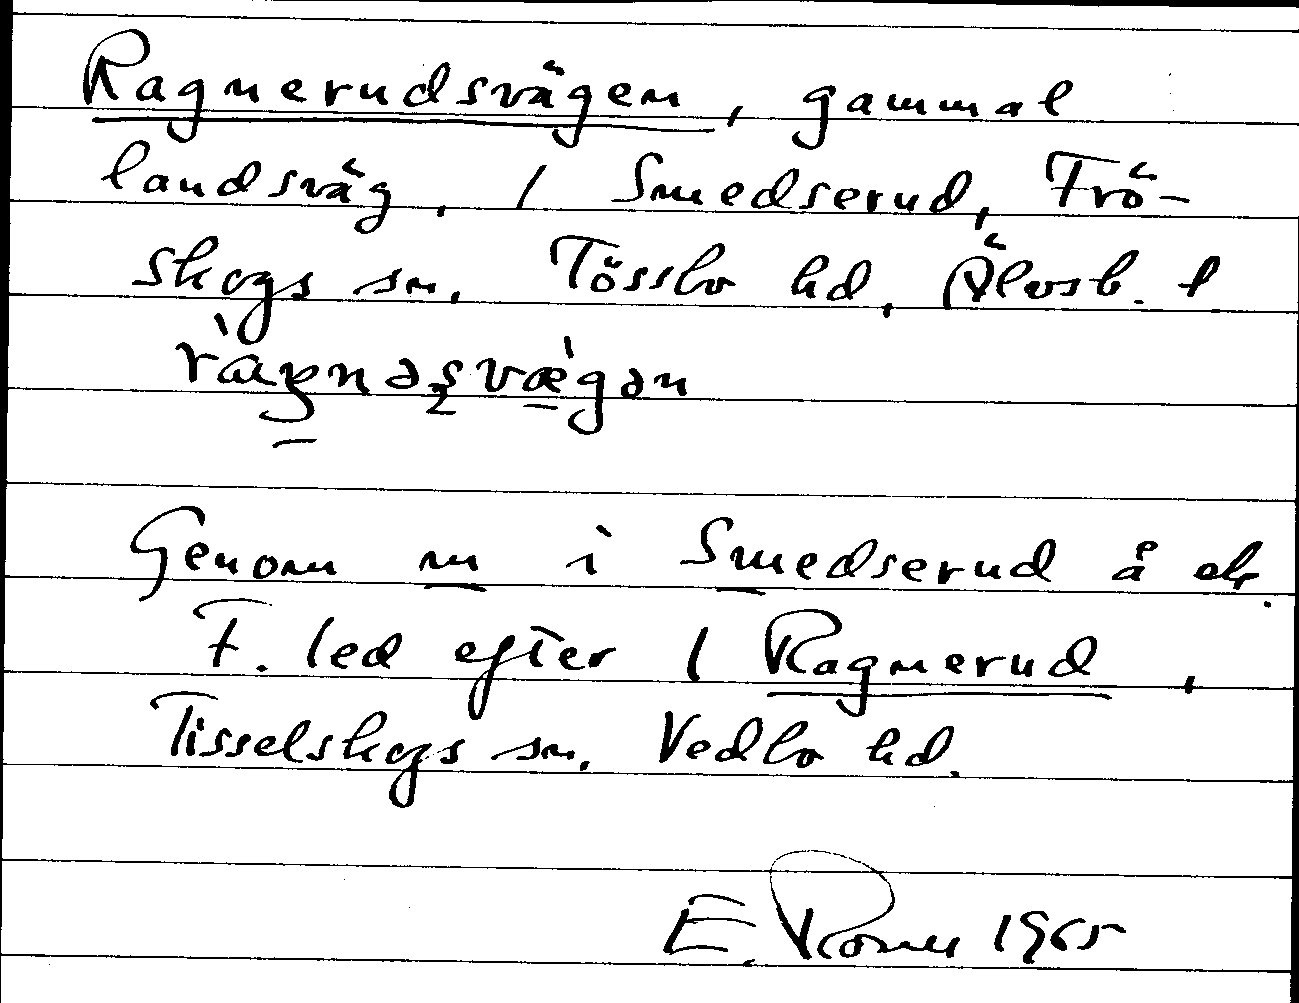 Ragnerudsvägen, gammal
landsväg, / Smedserud, Frö-
skogs sn. Tössbo hd, Älvsb. l
Genom m i Smedserud å ek.
F. led efter / Ragnerud,
Tisselskogs sn. Vedbo hd.
E. 1965